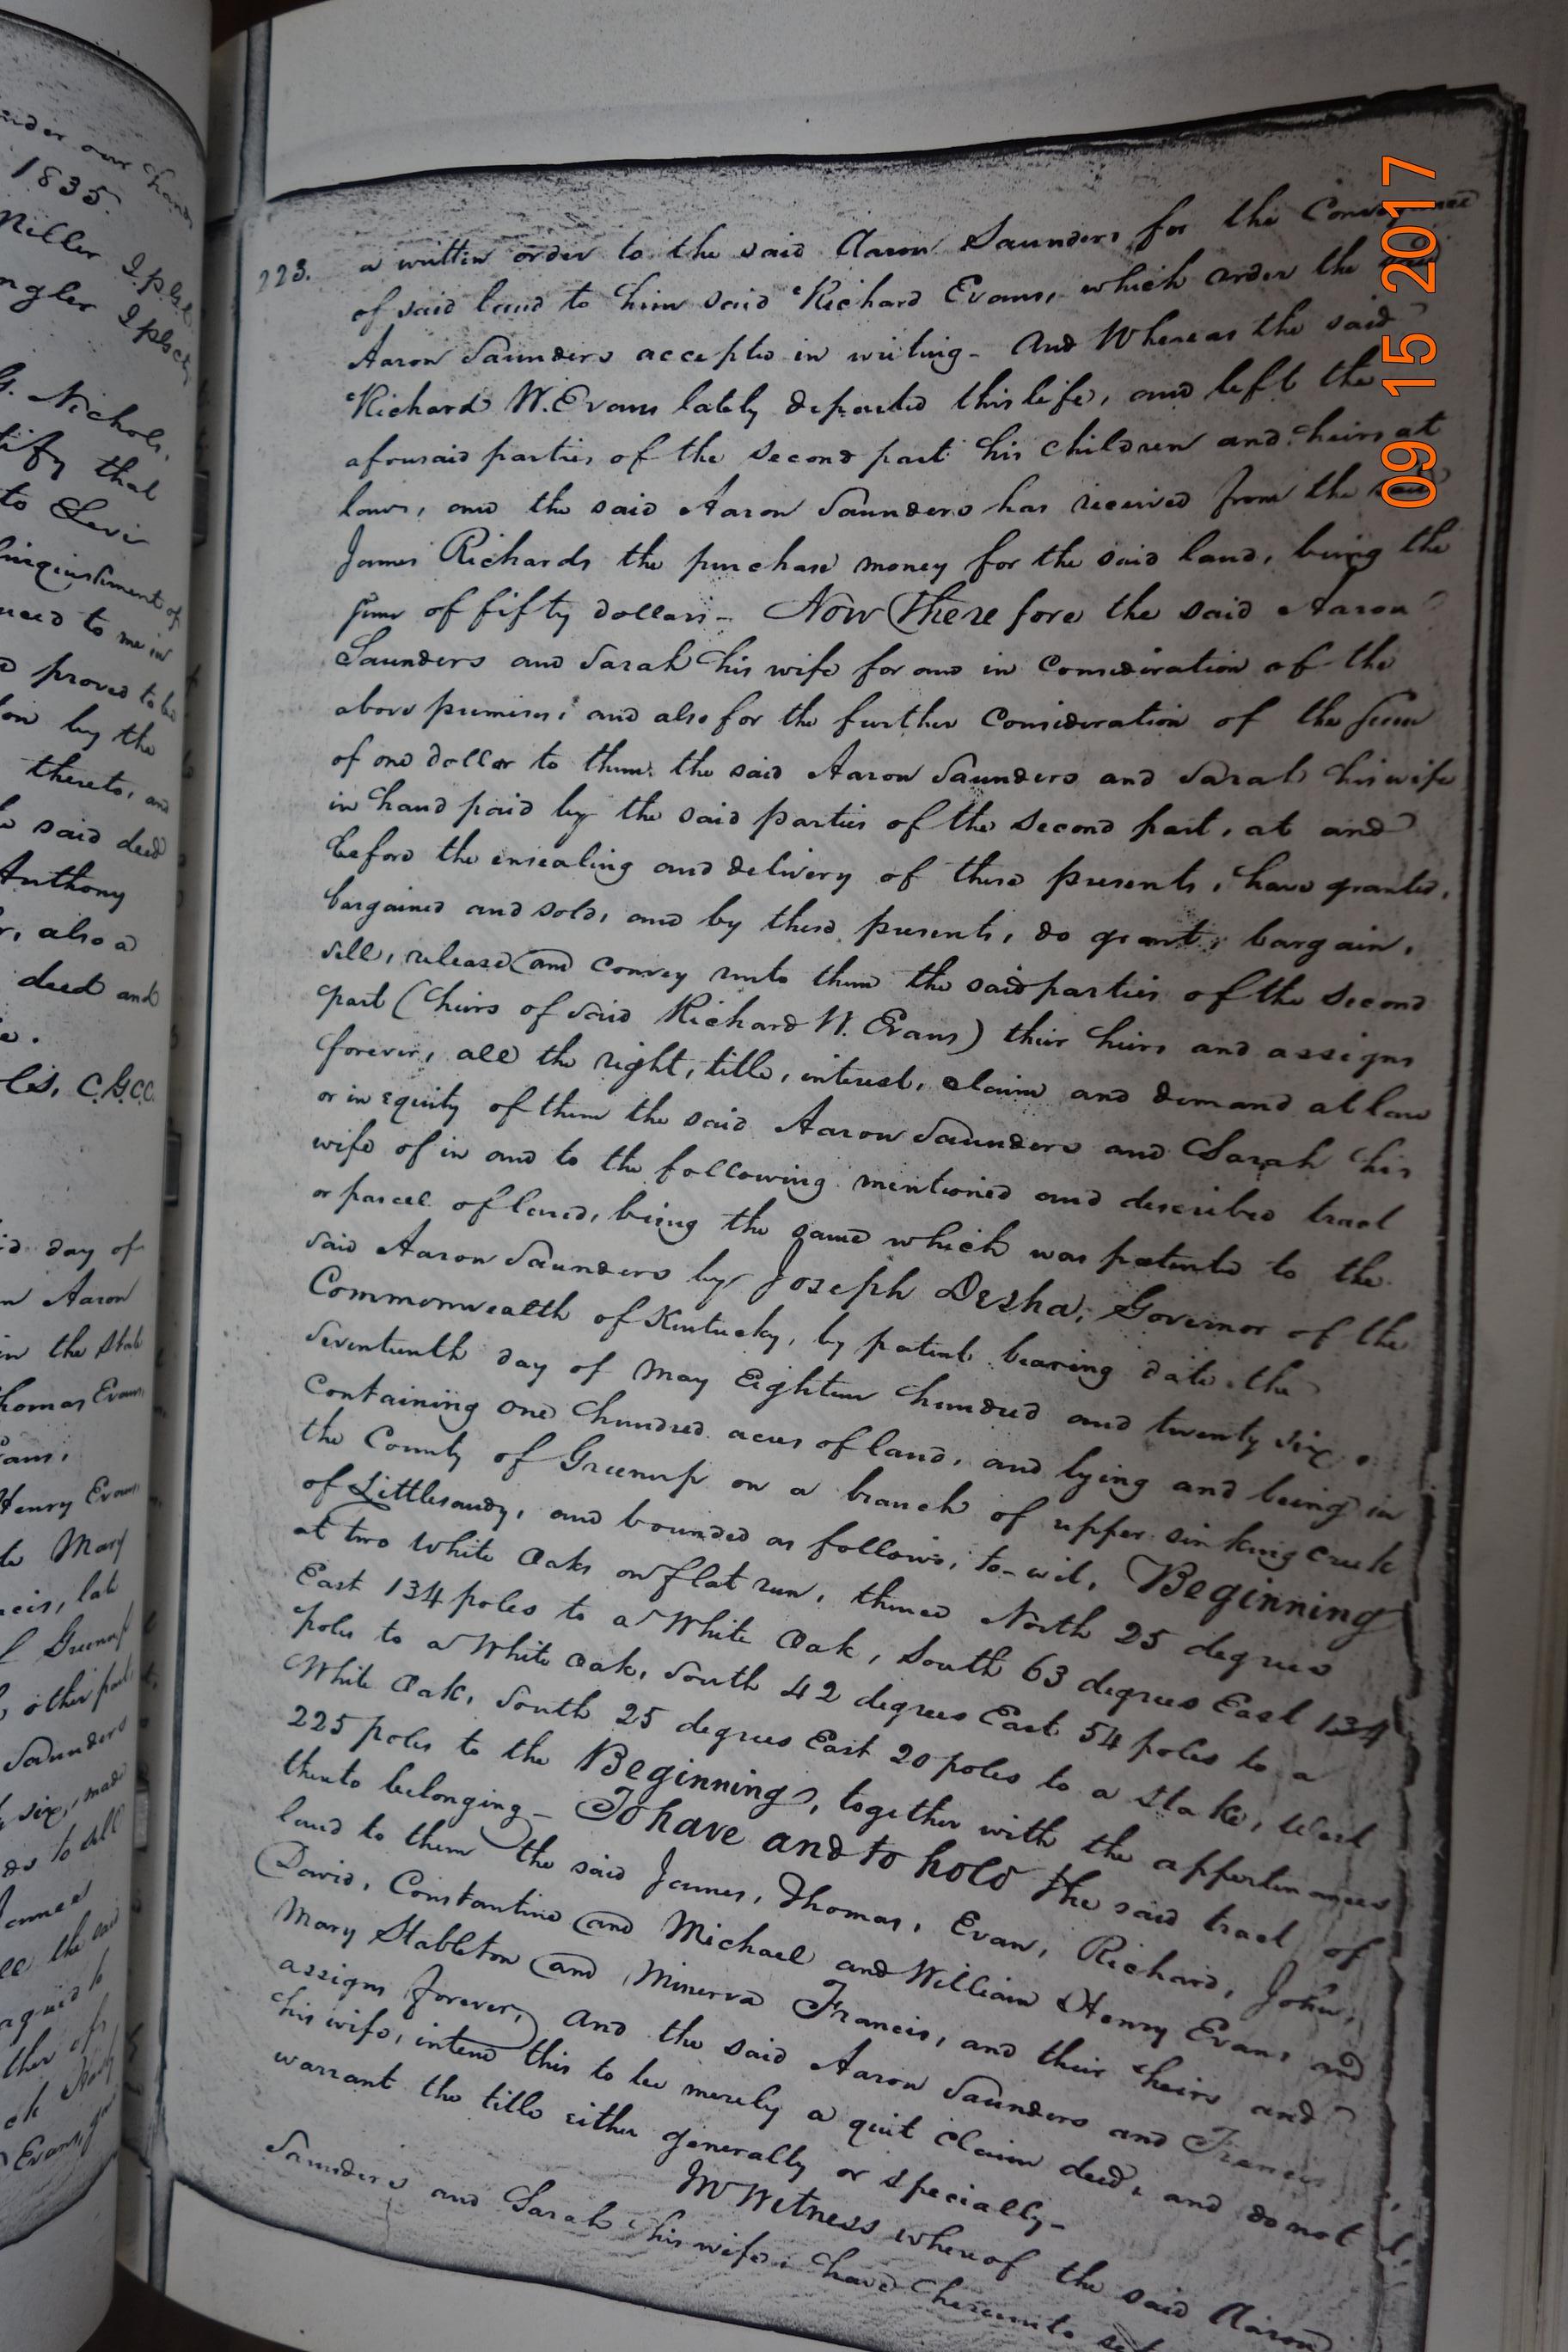 nder our hand
1835.
Miller J.P.G.C
ngler JPGC
G. Nichols,
tify that
to Levi
linquishment of
uced to me in
d proved to be
ion by the
thereto, and
said deed
Anthony
r, also a
deed and
e.
ls, C.G.C.C.
id day of
n Aaron
in the State
homas Evans,
Evans,
Henry Evans
to Mary
ncis, late
f Greenup
other part,
Saunders
six, made
ds to sell
James
ll the said
ther of
Evans,
223.
a written order to the said Aaron Saunders for the Conveyance
of said land to him said Richard Evans, which order the said
Aaron Saunders accepted in writing - And Whereas the said
Richard W. Evans lately departed this life, and left the
aforesaid parties of the second part his children and heirs at
law, and the said Aaron Saunders has received from the said
James Richards the purchase money for the said land, being the
sum of fifty dollars - Now Therefore the said Aaron
Saunders and Sarah his wife for and in consideration of the
above premises, and also for the further consideration of the sum
of one dollar to them, the said Aaron Saunders and Sarah his wife
in hand paid by the said parties of the second part, at and
before the ensealing and delivery of these presents, have granted,
bargained and sold, and by these presents, do grant, bargain,
sell, release and convey unto them the said parties of the second
part (heirs of said Richard W. Evans) their heirs and assigns
forever, all the right, title, interest, claim and demand at law
or in equity of them the said Aaron Saunders and Sarah his
wife of in and to the following mentioned and described tract
or parcel of land, being the same which was patented to the
said Aaron Saunders by Joseph Desha, Governor of the
Commonwealth of Kentucky, by patent bearing date the
Seventeenth day of May Eighteen hundred and twenty six,
Containing one hundred acres of land, and lying and being in
the County of Greenup on a branch of upper sinking creek
of Littlesandy, and bounded as follows, to-wit, Beginning
at two White Oaks on flat run, thence North 25 degrees
East 134 poles to a White Oak, South 63 degrees East 134
poles to a White Oak, South 42 degrees East 54 poles to a
White Oak, South 25 degrees East 20 poles to a Stake, West
225 poles to the Beginning, together with the appertinances
thereto belonging - To have and to hold the said tract of
land to them the said James, Thomas, Evan, Richard, John,
David, Constantine and Michael and William Henry Evans and
Mary Stableton and Minerva Francis, and their heirs and
assigns forever, and the said Aaron Saunders and Francis
his wife, intend this to be merely a quit claim deed, and do not
warrant the title either generally or specially -
In Witness whereof the said Aaron
Saunders and Sarah his wife, have hereunto set
09 15 2017